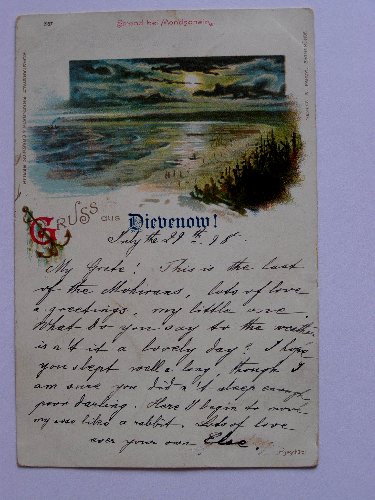 Strand bei Mondschein.
Gruss aus Dievenow!
July the 29th. 98.
My Grete! This is the last
of the Mohicans, lots of love
& greetings, my little one.
What do you say to the weather
is n't it a lovely day? I hope
you slept well & long, though I
am sure you did n't sleep enough
poor darling. Here I begin to move
my nose like a rabbit. Lots of love
ever your own Else.